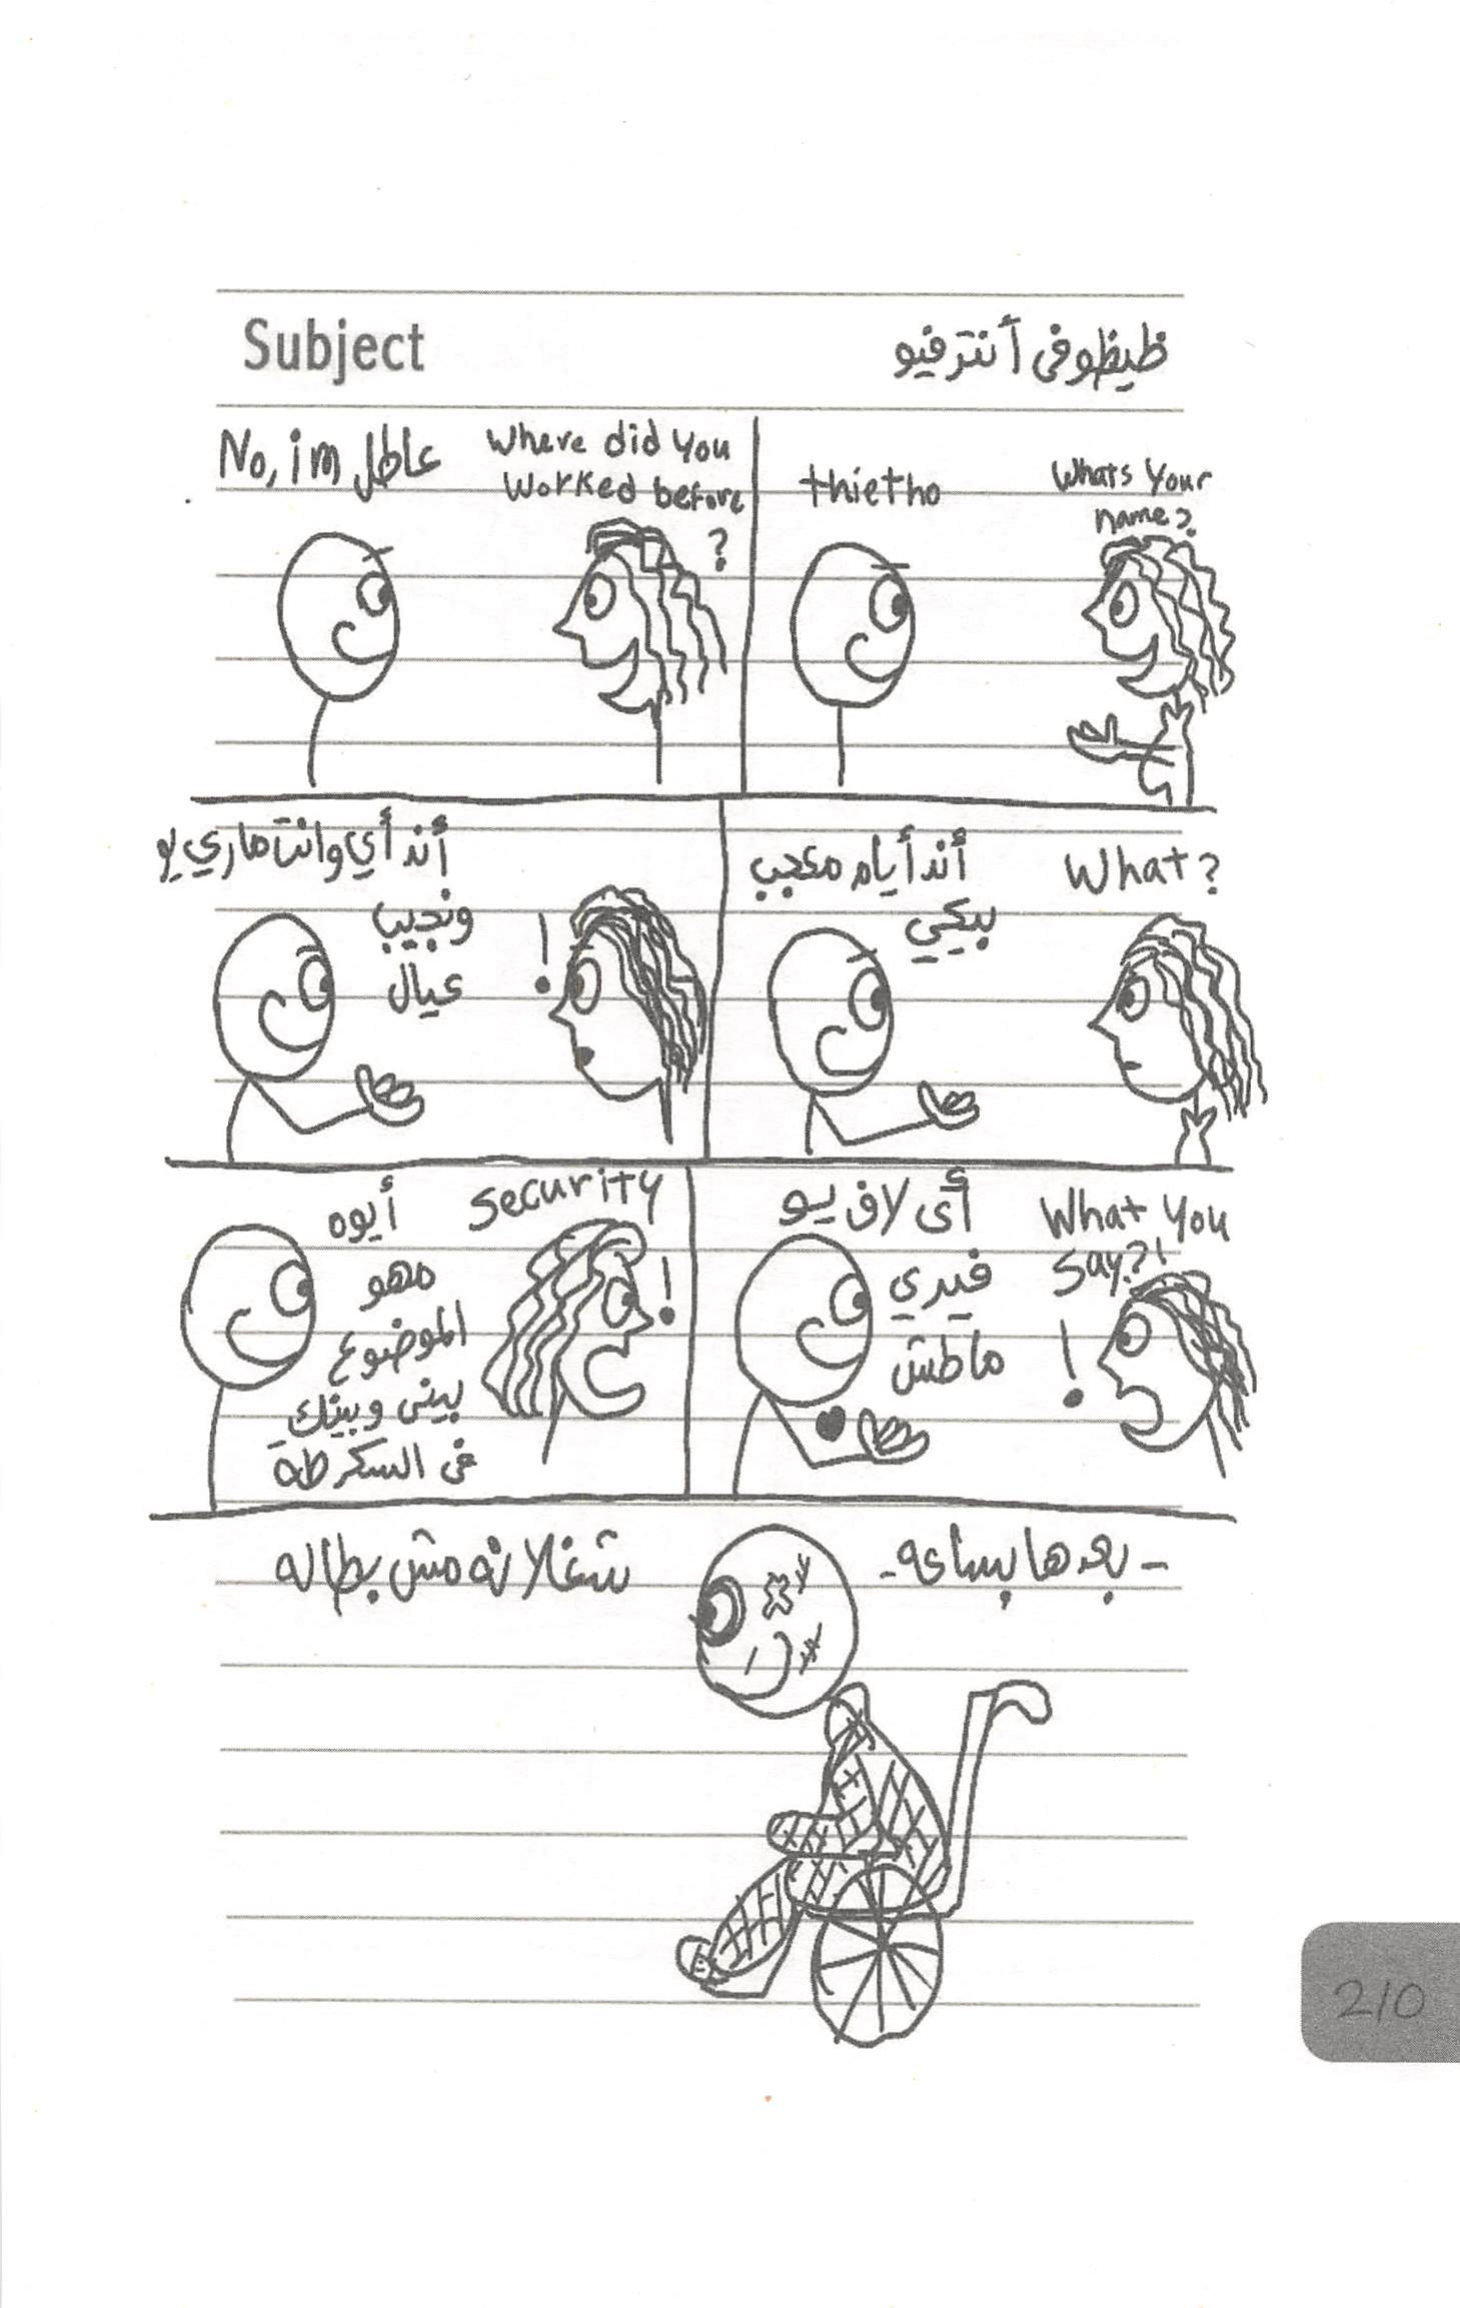 Subject
ظيظو فى أنترفيو
Whats Your
name?
thietho
Where did You
worked before
?
No, im عاطل
What?
أند أيام معجب
بيكي
!
أند أي وانت ماري يو
ونجيب
عيال
What You
Say?!
!
أى لاف يو
فيري
ماطش
Security
!
أيوه
مهو
الموضوع
بينى وبينك
فى السكرطة
- بعدها بساعه -
شغلانه مش بطاله
210